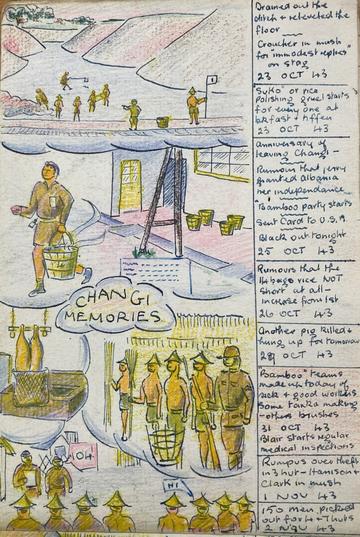 Drained out the
ditch & reveted the
floor
Croucher in mush
for "modest replies"
on stag
23 OCT 43
"SUKO" or rice
Polishing gruel starts
for every one at
bkfast & tiffen
23 OCT 43
Anniversary of
leaving Changi -
Rumour that Jerry
granted Albania
her independance
"Bamboo party starts
Sent Card to U.S.A.
Black out tonight
25 OCT 43
Rumours that the
114 bags rice NOT
Short at all -
increase from 1st
26 OCT 43
Another pig killed &
hung up for tomorrow
28 OCT 43
"Bamboo" teams
made up today of
sick & good workers
Some Tanka making
- others brushes
31 OCT 43
Blair starts regular
medical inspections
Rumpus over theft
in 3 hut - Harrison &
Clark in mush
1 NOV 43
150 men picked
out for W & Thurs
2 NOV 43
CHANGI
MEMORIES
104
N1